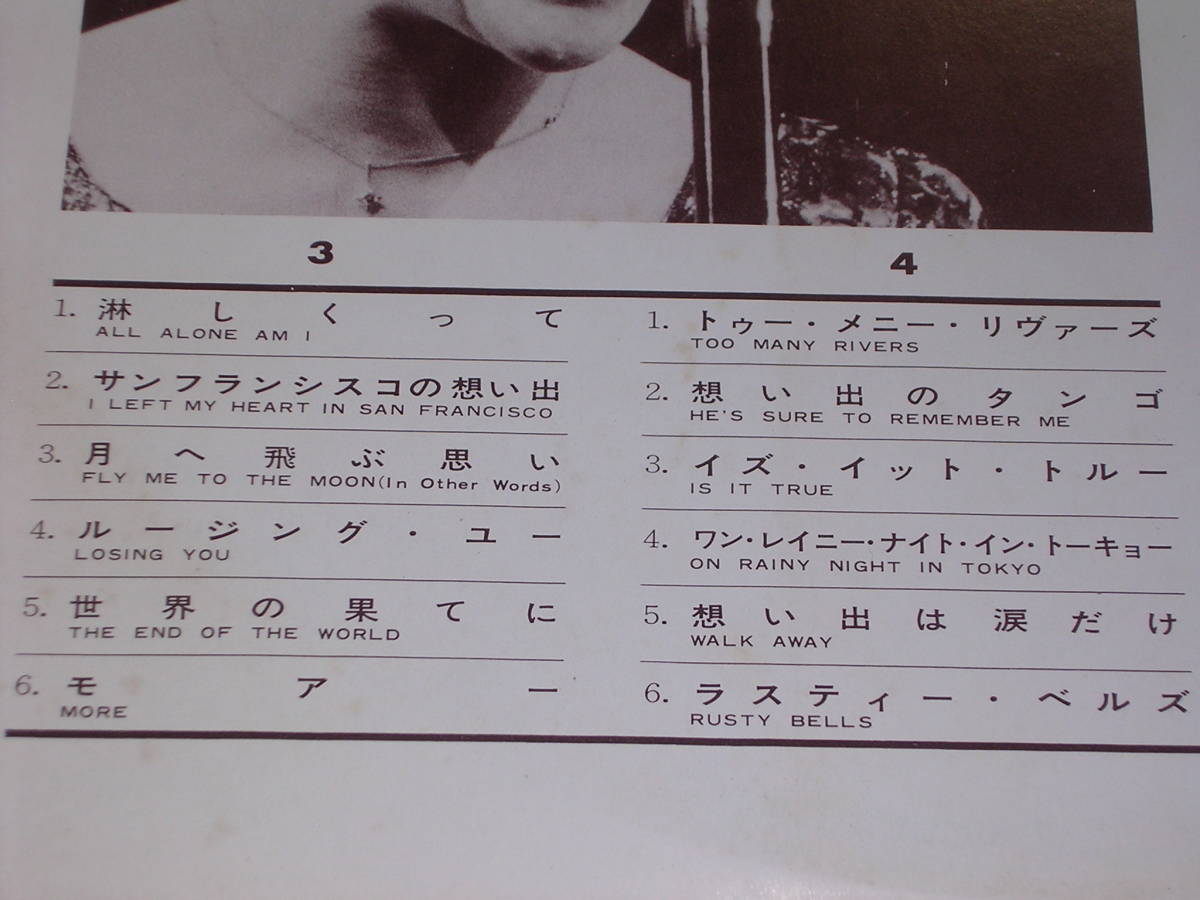 3
1. 淋しくって
ALL ALONE AM I
2. サンフランシスコの想い出
I LEFT MY HEART IN SAN FRANCISCO
3. 月へ飛ぶ思い
FLY ME TO THE MOON(In Other Words)
4. ルージング・ユー
LOSING YOU
5. 世界の果てに
THE END OF THE WORLD
6. モアー
MORE
4
1. トゥー・メニー・リヴァーズ
TOO MANY RIVERS
2. 想い出のタンゴ
HE'S SURE TO REMEMBER ME
3. イズ・イット・トルー
IS IT TRUE
4. ワン・レイニー・ナイト・イン・トーキョー
ON RAINY NIGHT IN TOKYO
5. 想い出は涙だけ
WALK AWAY
6. ラスティー・ベルズ
RUSTY BELLS